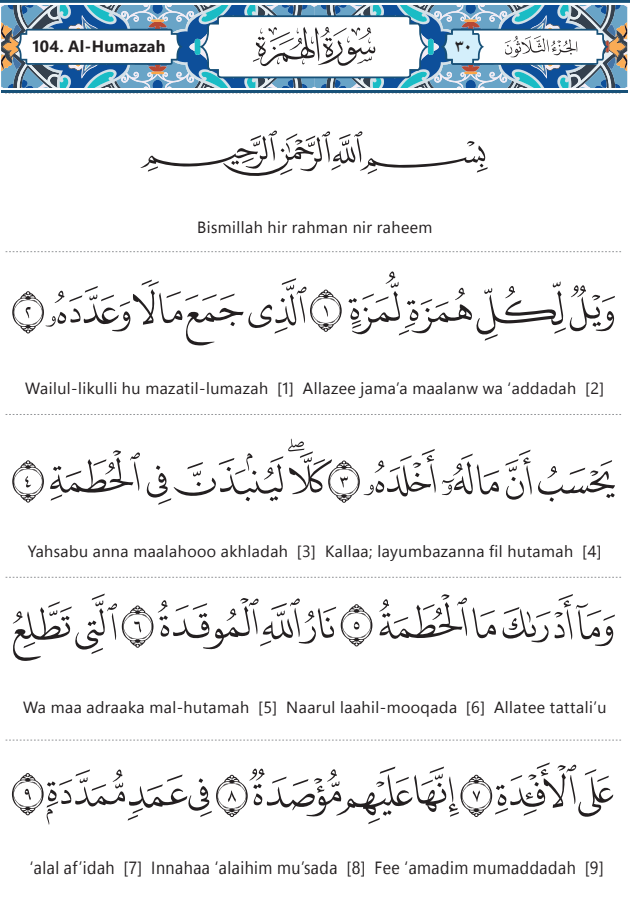 104. Al-Humazah سُورَةُ الهُمَزَةِ ٣٠ الجُزْءُ الثَّلَاثُونَ
بِسْمِ ٱللَّهِ ٱلرَّحْمَٰنِ ٱلرَّحِيمِ
Bismillah hir rahman nir raheem
وَيْلٌ لِّكُلِّ هُمَزَةٍ لُّمَزَةٍ ١ ٱلَّذِى جَمَعَ مَالًا وَعَدَّدَهُۥ ٢
Wailul-likulli hu mazatil-lumazah [1] Allazee jama’a maalanw wa ‘addadah [2]
يَحْسَبُ أَنَّ مَالَهُۥٓ أَخْلَدَهُۥ ٣ كَلَّا ۖ لَيُنۢبَذَنَّ فِى ٱلْحُطَمَةِ ٤
Yahsabu anna maalahooo akhladah [3] Kallaa; layumbazanna fil hutamah [4]
وَمَآ أَدْرَىٰكَ مَا ٱلْحُطَمَةُ ٥ نَارُ ٱللَّهِ ٱلْمُوقَدَةُ ٦ ٱلَّتِى تَطَّلِعُ
Wa maa adraaka mal-hutamah [5] Naarul laahil-mooqada [6] Allatee tattali’u
عَلَى ٱلْأَفْـِٔدَةِ ٧ إِنَّهَا عَلَيْهِم مُّؤْصَدَةٌ ٨ فِى عَمَدٍ مُّمَدَّدَةٍۭ ٩
‘alal af’idah [7] Innahaa ‘alaihim mu’sada [8] Fee ‘amadim mumaddadah [9]